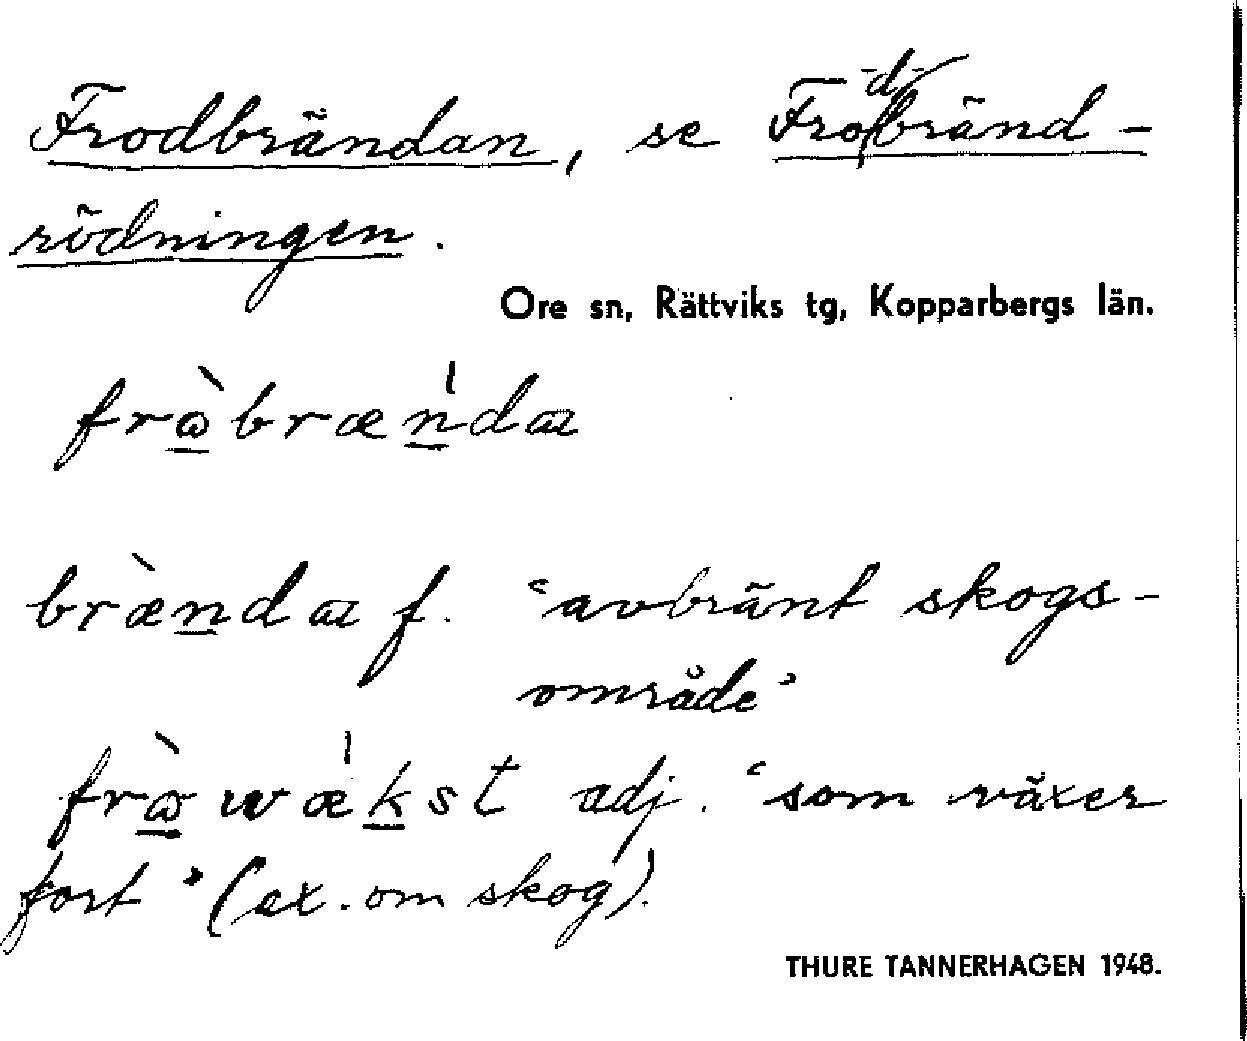 Frodbrändan, se Frodbränd-
rödningen.
Ore sn, Rättviks tg, Kopparbergs län.
frɷ̀brænda
brænda f. ‘avbränt skogs-
område’
frɷ̀wækst adj. ‘som växer
fort’ (ex. om skog).
THURE TANNERHAGEN 1948.